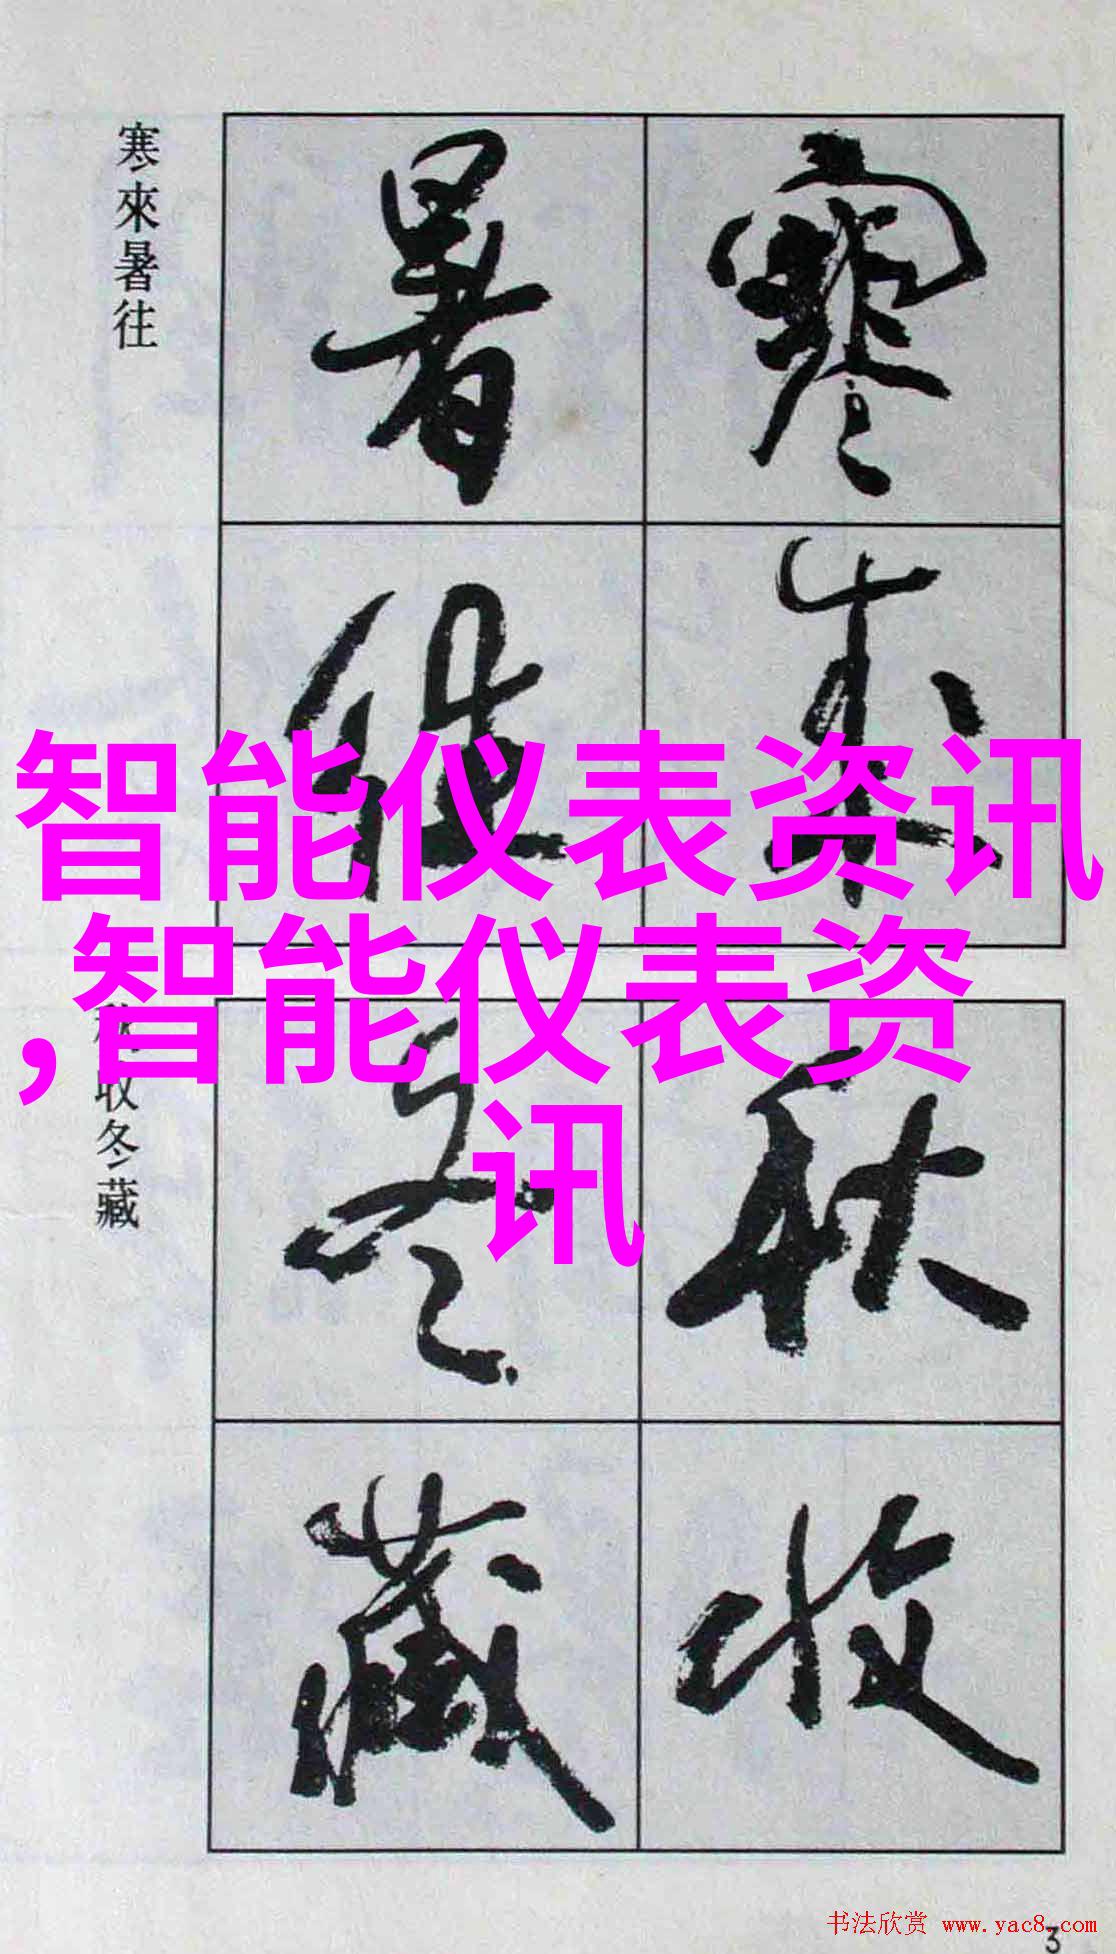 寒来
暑往
寒來暑往
智能仪表资讯
,智能仪表资
讯
秋收
冬藏
收冬藏
书法欣赏 www.yac8.com
3